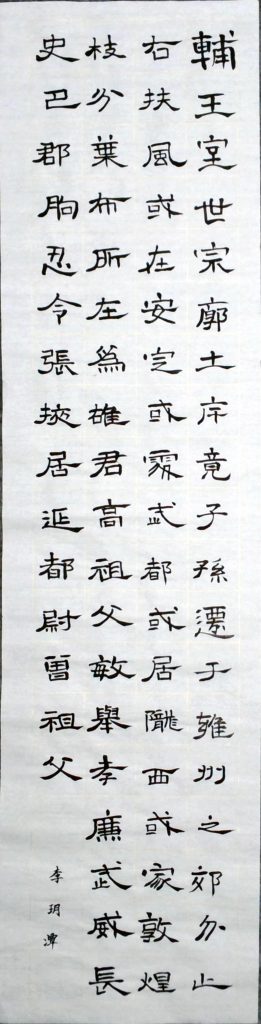 輔王室世宗廓土斥竟子孫遷于雍州之郊分止
右扶風或在安定或處武都或居隴西或家敦煌
枝分葉布所在爲雄君高祖父敏舉孝廉武威長
史巴郡朐忍令張掖居延都尉曾祖父
李玥潭